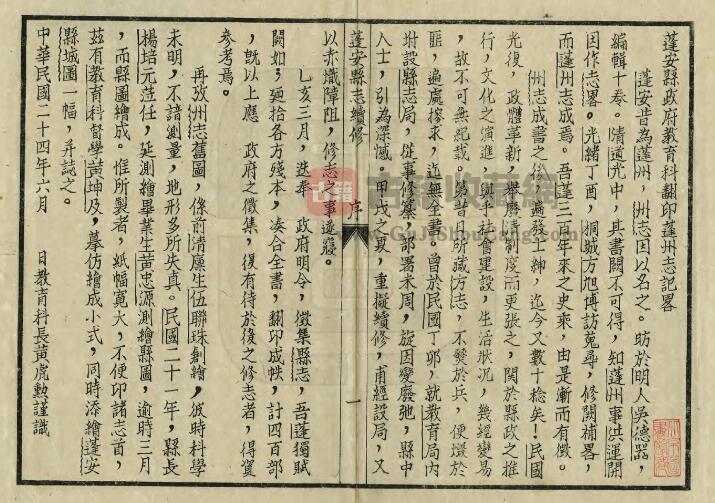 蓬安縣政府教育科翻印蓬州志記畧
蓬安昔為蓬州,州志因以名之。昉於明人吳德器,
編輯十卷。清道光中,其書闕不可得,知蓬州事洪運開
因作志畧。光緒丁酉,桐城方旭博訪蒐尋,修闕補畧,
而蓬州志成焉。吾蓬二百年來之史來,由是漸而有徵。
州志成書之後,遍發士紳,迄今又數十稔矣!民國
光復,政體革新,舉厝清制度而更張之,關於縣政之推
行,文化之演進,與乎社會建設,生活狀況,幾經變易
,故不可無紀載。第昔日所藏方志,不燬於兵,便燬於
匪,遍處搜求,迄無全書。曾於民國丁卯,就教育局內
附設縣志局,從事修纂,部署未周,旋因變廢弛,縣中
人士,引為深憾。甲戌之夏,重擬續修,甫經設局,又
蓬安縣志續修
序
一
以赤熾障阻,修志之事遂寢。
乙亥三月,迭奉 政府明令,徵集縣志,吾蓬獨賦
闕如;廼拾各方殘本,湊合全書,翻印成帙,計四百部
,旣以上應 政府之徵集,復有待於後之修志者,得資
參考焉。
再攷州志舊圖,係前清廩生伍聯珠創繪,彼時科學
未明,不諳測量,地形多所失真。民國二十一年,縣長
楊培元蒞任,延測繪畢業生黃忠源測繪縣圖,逾時三月
,而縣圖繪成。惟所製者,紙幅寬大,不便印諸志首,
茲有教育科督學黃坤及,摹仿繪成小式,同時添繪蓬安
縣城圖一幅,并誌之。
中華民國二十四年六月 日教育科長黃虎勳謹識
古籍收藏网
www.GuJiShouCang.com